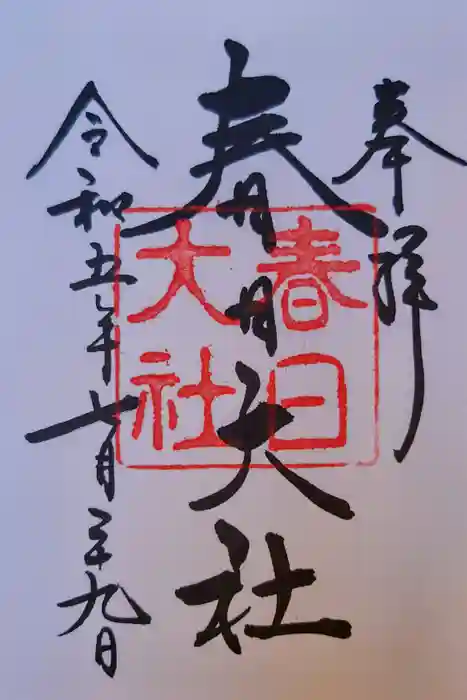 奉拝
春日大社
春日
大社
令和五年七月二十九日